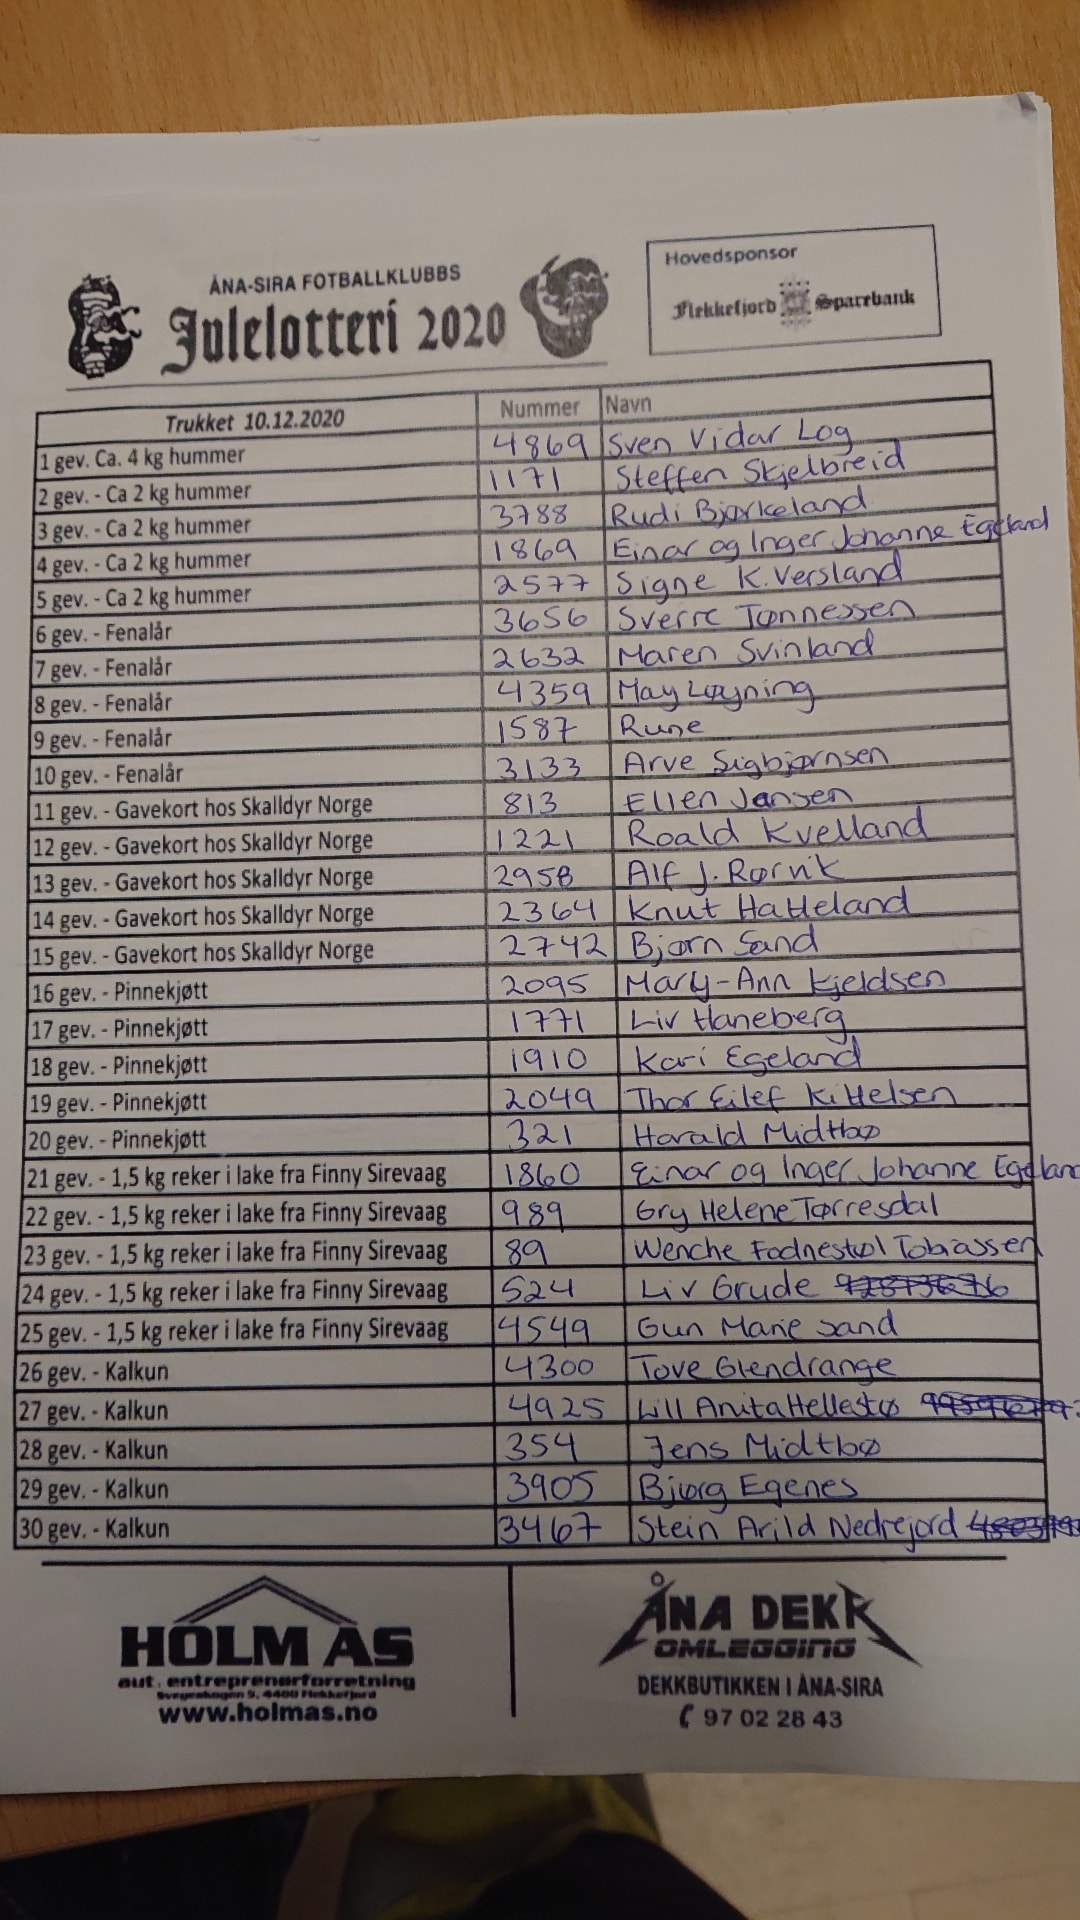 ÅNA-SIRA FOTBALLKLUBBS
Julelotteri 2020
Hovedsponsor
Flekkefjord Sparebank
Trukket 10.12.2020 Nummer Navn
1 gev. Ca. 4 kg hummer 4869 Sven Vidar Log
2 gev. - Ca 2 kg hummer 1171 Steffen Skjelbreid
3 gev. - Ca 2 kg hummer 3788 Rudi Bjørkeland
4 gev. - Ca 2 kg hummer 1869 Einar og Inger Johanne Egeland
5 gev. - Ca 2 kg hummer 2577 Signe K. Versland
6 gev. - Fenalår 3656 Sverre Tønnessen
7 gev. - Fenalår 2632 Maren Svinland
8 gev. - Fenalår 4359 May Løyning
9 gev. - Fenalår 1587 Rune
10 gev. - Fenalår 3133 Arve Sigbjørnsen
11 gev. - Gavekort hos Skalldyr Norge 813 Ellen Jansen
12 gev. - Gavekort hos Skalldyr Norge 1221 Roald Kvelland
13 gev. - Gavekort hos Skalldyr Norge 2958 Alf J. Rørvik
14 gev. - Gavekort hos Skalldyr Norge 2364 Knut Hatteland
15 gev. - Gavekort hos Skalldyr Norge 2742 Bjørn Sand
16 gev. - Pinnekjøtt 2095 Mary-Ann Kjeldsen
17 gev. - Pinnekjøtt 1771 Liv Haneberg
18 gev. - Pinnekjøtt 1910 Kari Egeland
19 gev. - Pinnekjøtt 2049 Thor Eilef Kittelsen
20 gev. - Pinnekjøtt 321 Harald Midtbø
21 gev. - 1,5 kg reker i lake fra Finny Sirevaag 1860 Einar og Inger Johanne Egeland
22 gev. - 1,5 kg reker i lake fra Finny Sirevaag 989 Gry Helene Tørresdal
23 gev. - 1,5 kg reker i lake fra Finny Sirevaag 89 Wenche Fodnestøl Tobiassen
24 gev. - 1,5 kg reker i lake fra Finny Sirevaag 524 Liv Grude
25 gev. - 1,5 kg reker i lake fra Finny Sirevaag 4549 Gun Marie Sand
26 gev. - Kalkun 4300 Tove Glendrange
27 gev. - Kalkun 4925 Lill Anita Hellestø
28 gev. - Kalkun 354 Jens Midtbø
29 gev. - Kalkun 3905 Bjørg Egenes
30 gev. - Kalkun 3467 Stein Arild Nedrejord
HOLM AS
aut. entreprenørforretning
www.holmas.no
ÅNA DEKK
OMLEGGING
DEKKBUTIKKEN I ÅNA-SIRA
97 02 28 43